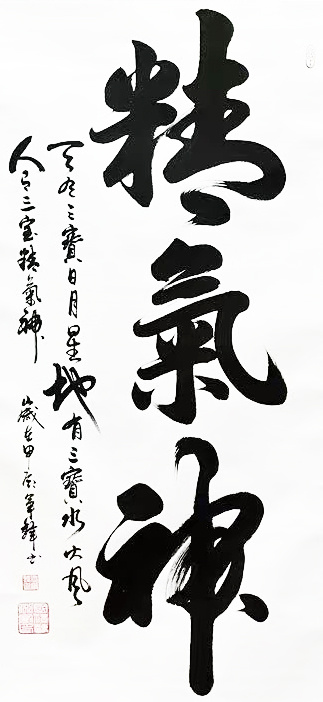 精氣神
天有三寶日月星地有三寶水火風
人有三宝精氣神
歲在甲辰年羲书